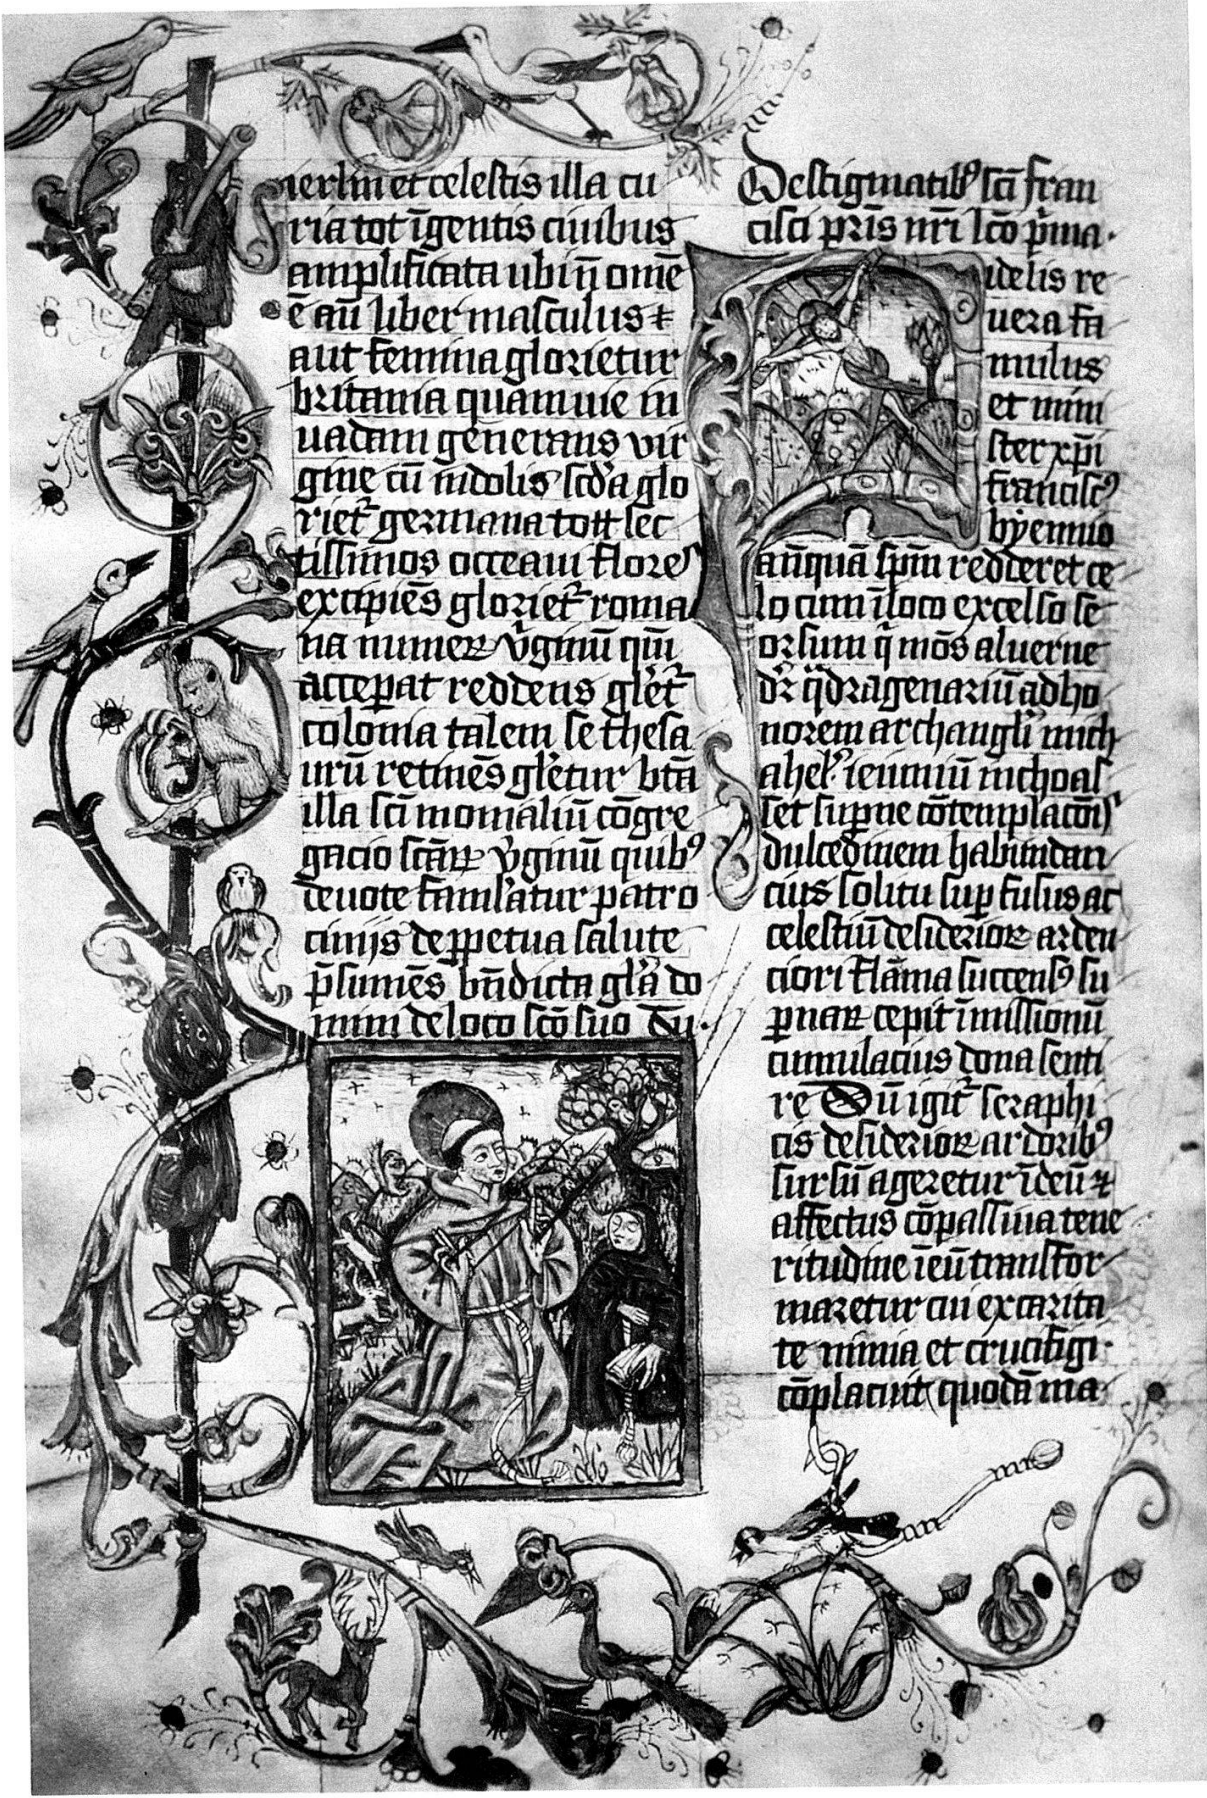 ierlm̄ et celestis illa cu
ria tot īgentis ciuibus
amplificata ubi n̄ om̄e
ē aū liber masculus ⁊
aut femina glorietur
britania quam uie in
uadam generans vir
gine cū indolis scd̓a glo
riet᷑ germana tot lec
tissimos occeani flores
excipiēs gloriet᷑ roma
na numeꝝ v̓ginū qm̄
acceperat reddens gl̓et᷑
colonia talem se thesa
urū retinēs gl̓etur bt̄a
illa sc̄i monialiū cōgre
gacio sc̄aꝝ v̓ginū quibꝰ
deuote famlatur patro
cinijs de ꝑpetua salute
p̄sumēs bn̄dicta gl̓a do
mini de loco sc̄o suo Dū.
De stigmatibꝰ sc̄i fran
cisci pr̄is nr̄i lc̄o p̄ma.
Fidelis re
uera fa
mulus
et mini
ster xp̄i
franciscꝰ
byennio
an̄quā sp̄m redderet ce
lo cum ī loco excelso se
orsum q̄ mōs aluerne
dr̄ q̄dragenariū ad ho
norem archangl̓i mich
ahel̓. ieiuniū inchoas
set suꝑne cōtemplacōis
dulcedinem habundan
cius solitu suꝑfusus ac
celestiū desiderioꝝ arden
ciori flāma succensꝰ su
ꝑnaꝝ cepit īmissionū
cumulacius dona senti
re Dū igit᷑ seraphi
cis desiderioꝝ ardoribꝰ
sursū ageretur ī deū ⁊
affectus cōpassiua tene
ritudine ī eū transfor
maretur cui ex carita
te nimia et crucifigi.
cōplacuit quodā ma.